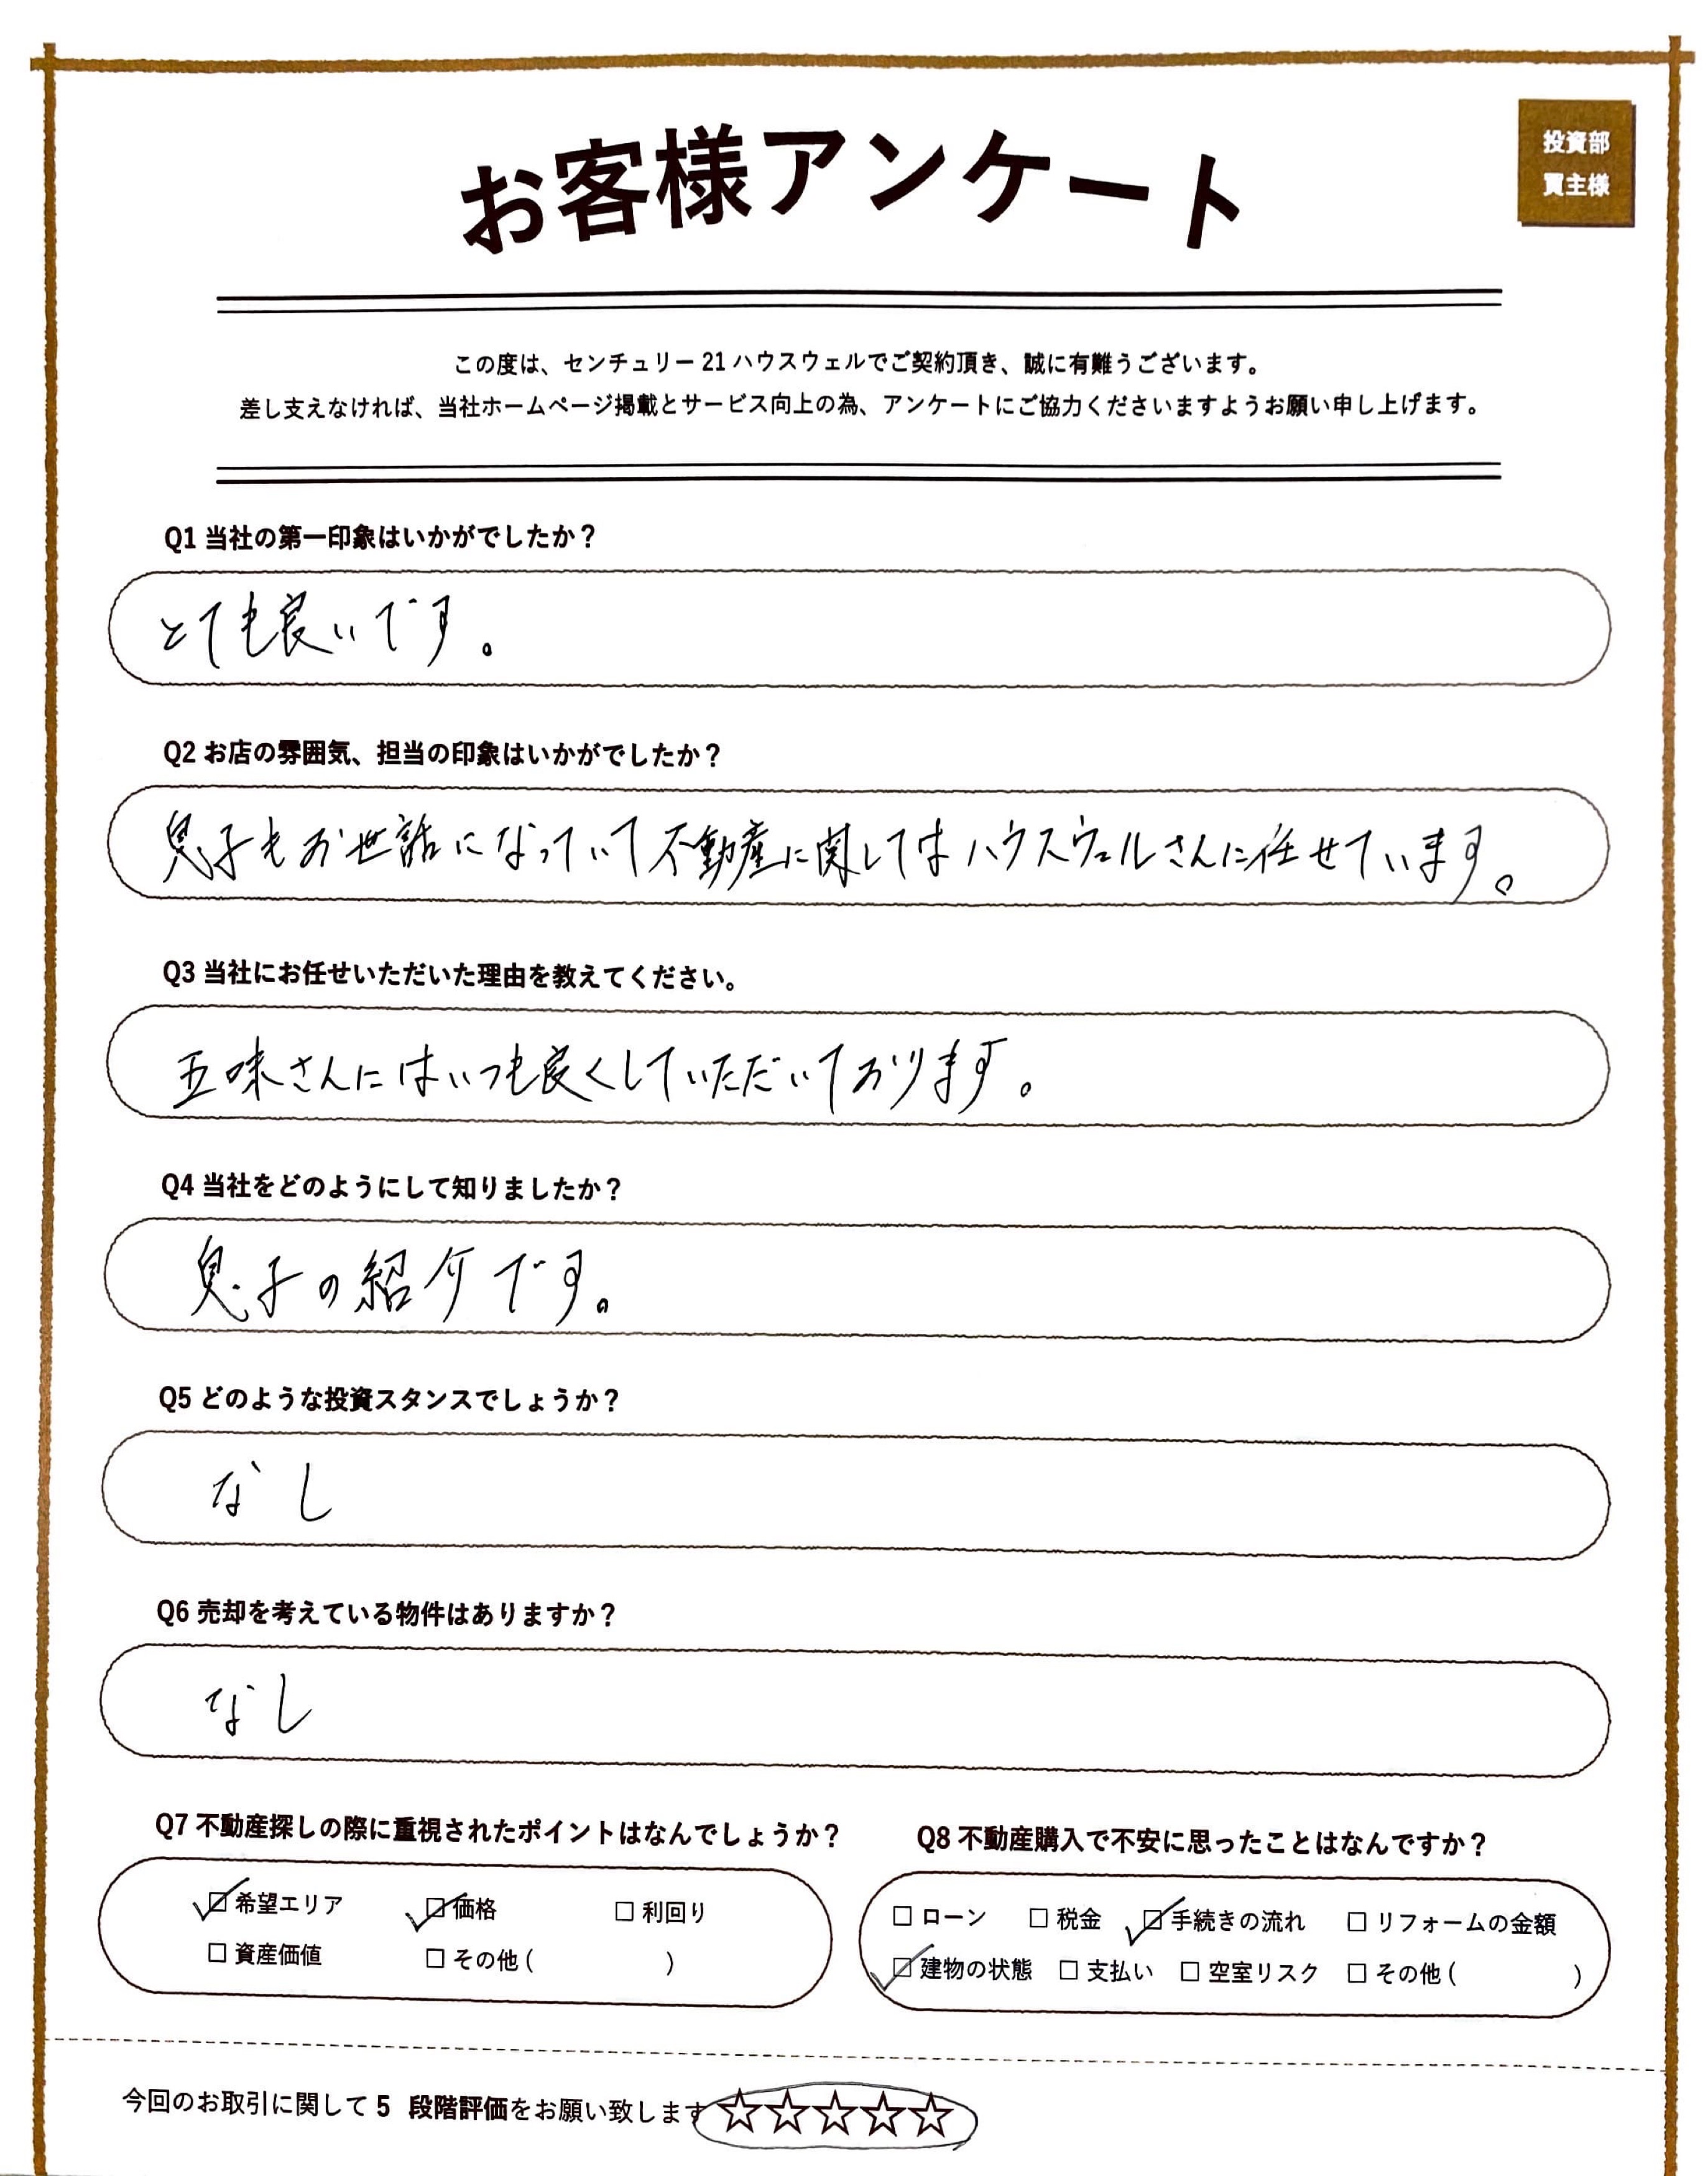 お客様アンケート
投資部
買主様
この度は、センチュリー21ハウスウェルでご契約頂き、誠に有難うございます。
差し支えなければ、当社ホームページ掲載とサービス向上の為、アンケートにご協力くださいますようお願い申し上げます。
Q1 当社の第一印象はいかがでしたか？
とても良いです。
Q2 お店の雰囲気、担当の印象はいかがでしたか？
息子もお世話になっていて不動産に関してはハウスウェルさんに任せています。
Q3 当社にお任せいただいた理由を教えてください。
五味さんにはいつも良くしていただいております。
Q4 当社をどのようにして知りましたか？
息子の紹介です。
Q5 どのような投資スタンスでしょうか？
なし
Q6 売却を考えている物件はありますか？
なし
Q7 不動産探しの際に重視されたポイントはなんでしょうか？
☑希望エリア ☑価格 □利回り
□資産価値 □その他( )
Q8 不動産購入で不安に思ったことはなんですか？
□ローン □税金 ☑手続きの流れ □リフォームの金額
☑建物の状態 □支払い □空室リスク □その他( )
今回のお取引に関して5 段階評価をお願い致します ☆☆☆☆☆